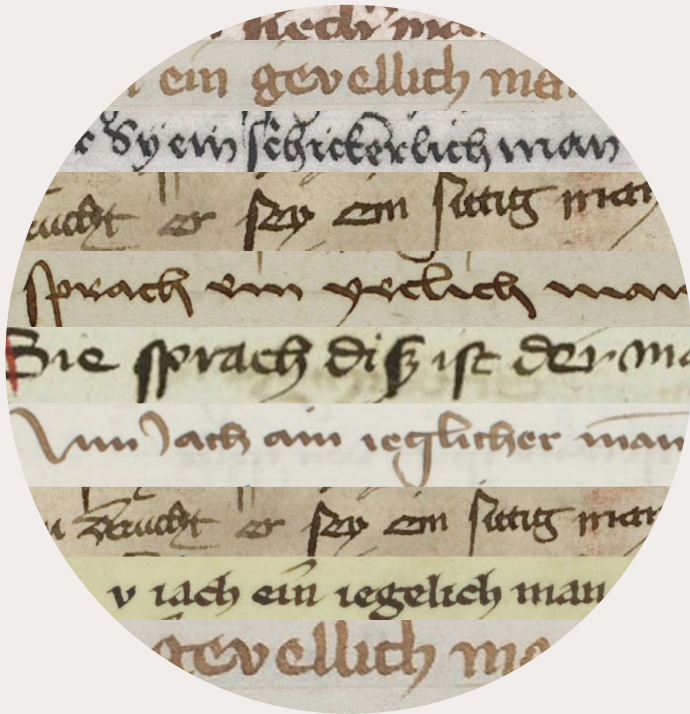 nech ma
ein gevellich man
Sy ein schickerlich man
er sey ein sittig man
sprach ein yeclich man
Sie sprach disz ist der ma
Nun Jach ain ieglicher man
er sey ein sittig man
v iach ein iegelich man
gevellich ma